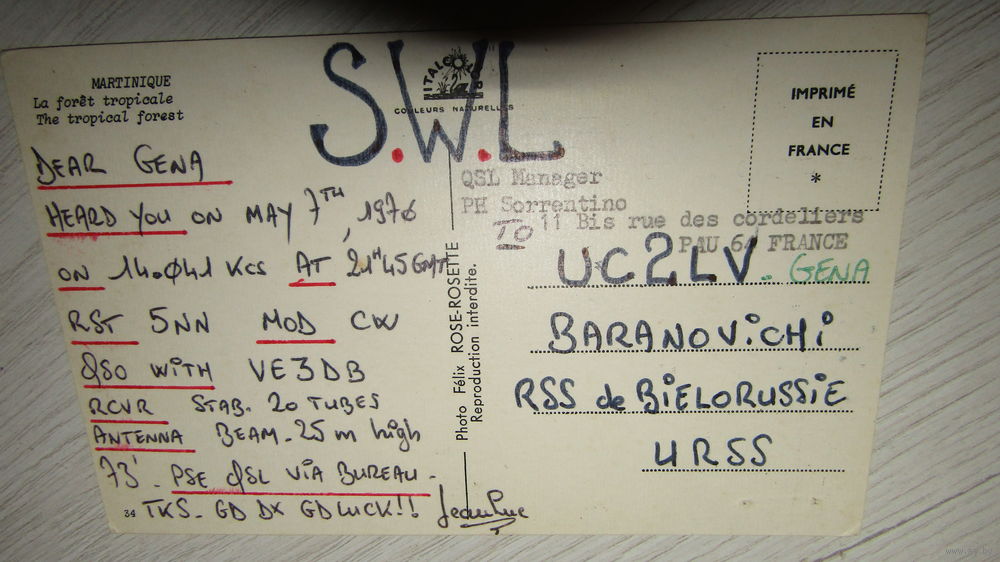 MARTINIQUE
La forêt tropicale
The tropical forest
DEAR GENA
HEARD YOU ON MAY 7TH, 1976
ON 14.041 KCS AT 21H45 GMT
RST 5NN MOD CW
QSO WITH VE3DB
RCVR STAB. 20 TUBES
ANTENNA BEAM. 25 m high
73'. PSE QSL VIA BUREAU.
34 TKS. GD DX GD LUCK!!
Jean Luc
S.W.L
COULEURS NATURELLES
Photo Félix ROSE-ROSETTE
Reproduction interdite.
IMPRIMÉ
EN
FRANCE
*
QSL Manager
PH Sorrentino
11 Bis rue des cordeliers
PAU 64 FRANCE
TO
UC2LV. GENA
BARANOVICHI
RSS de BIELORUSSIE
URSS